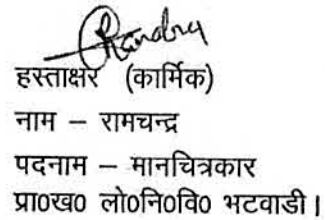 Chandra
हस्ताक्षर (कार्मिक)
नाम – रामचन्द्र
पदनाम – मानचित्रकार
प्रा०ख० लो०नि०वि० भटवाडी।